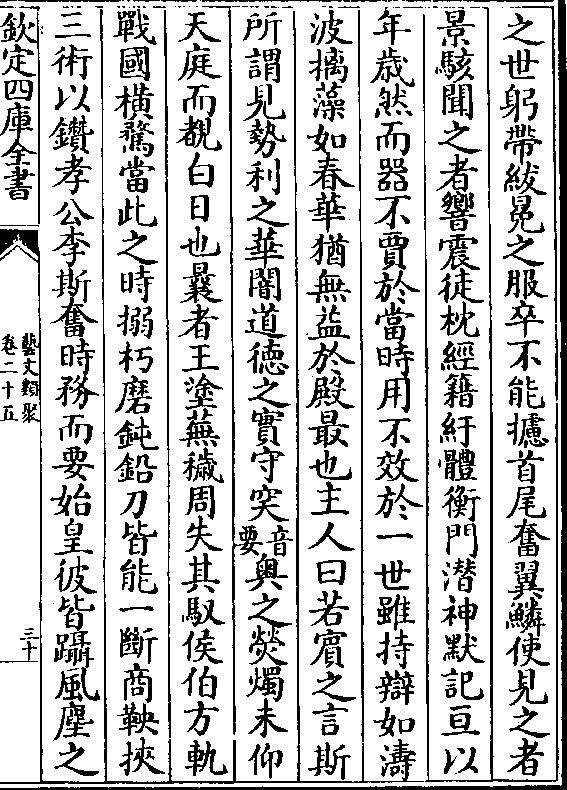 之世躬帶紱冕之服卒不能攄首尾奮翼鱗使見之者
景駭聞之者響震徒枕經籍紆體衡門潛神默記亘以
年歲然而器不賈於當時用不效於一世雖持辯如濤
波摛藻如春華猶無益於殿最也主人曰若賓之言斯
所謂見勢利之華闇道德之實守突音要奧之熒燭未仰
天庭而覩白日也曩者王塗蕪穢周失其馭侯伯方軌
戰國橫騖當此之時搦朽磨鈍鉛刀皆能一斷商鞅挾
三術以鑽孝公李斯奮時務而要始皇彼皆躡風塵之
欽定四庫全書
藝文類聚
卷二十五
三十